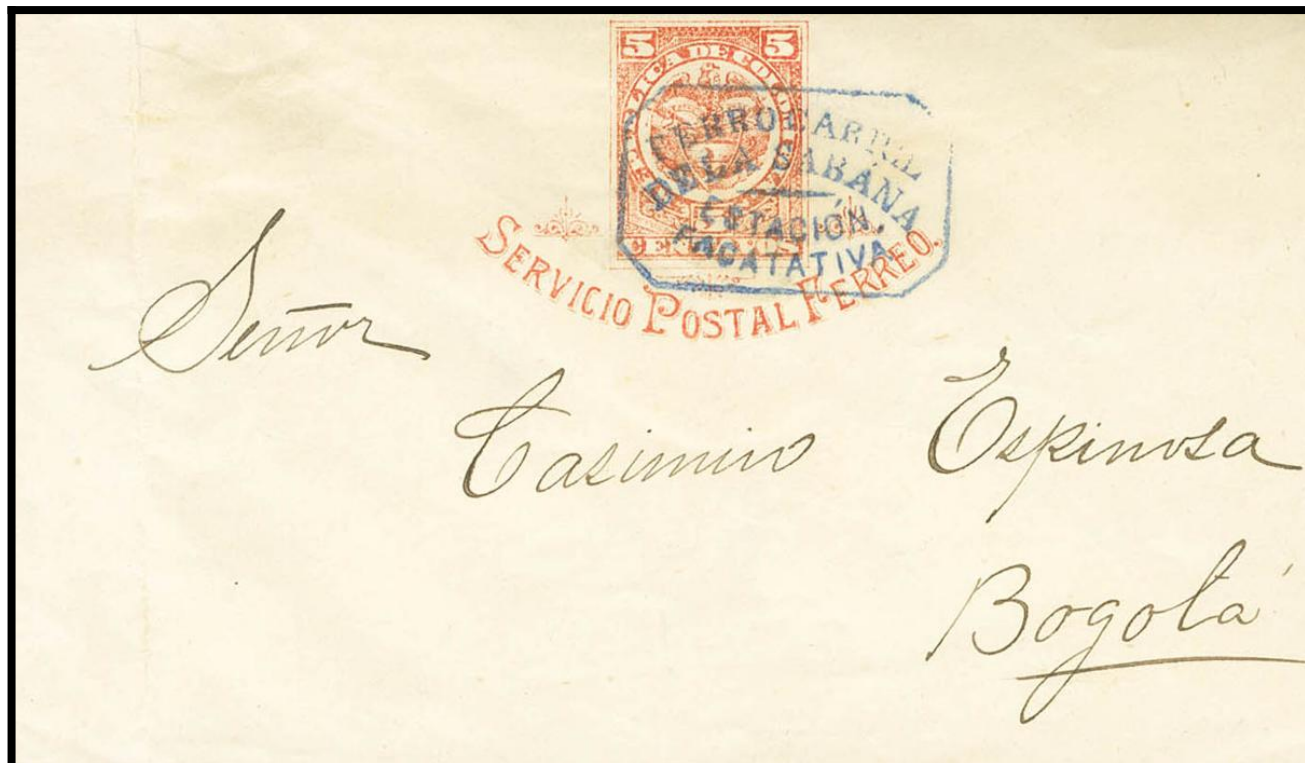 5 5
REPUBLICA DE COLOMBIA
CENTAVOS
FERROCARRIL
DE LA SABANA
ESTACIÓN.
FACATATIVA.
SERVICIO POSTAL FERREO.
Señor
Casimiro Espinosa
Bogotá